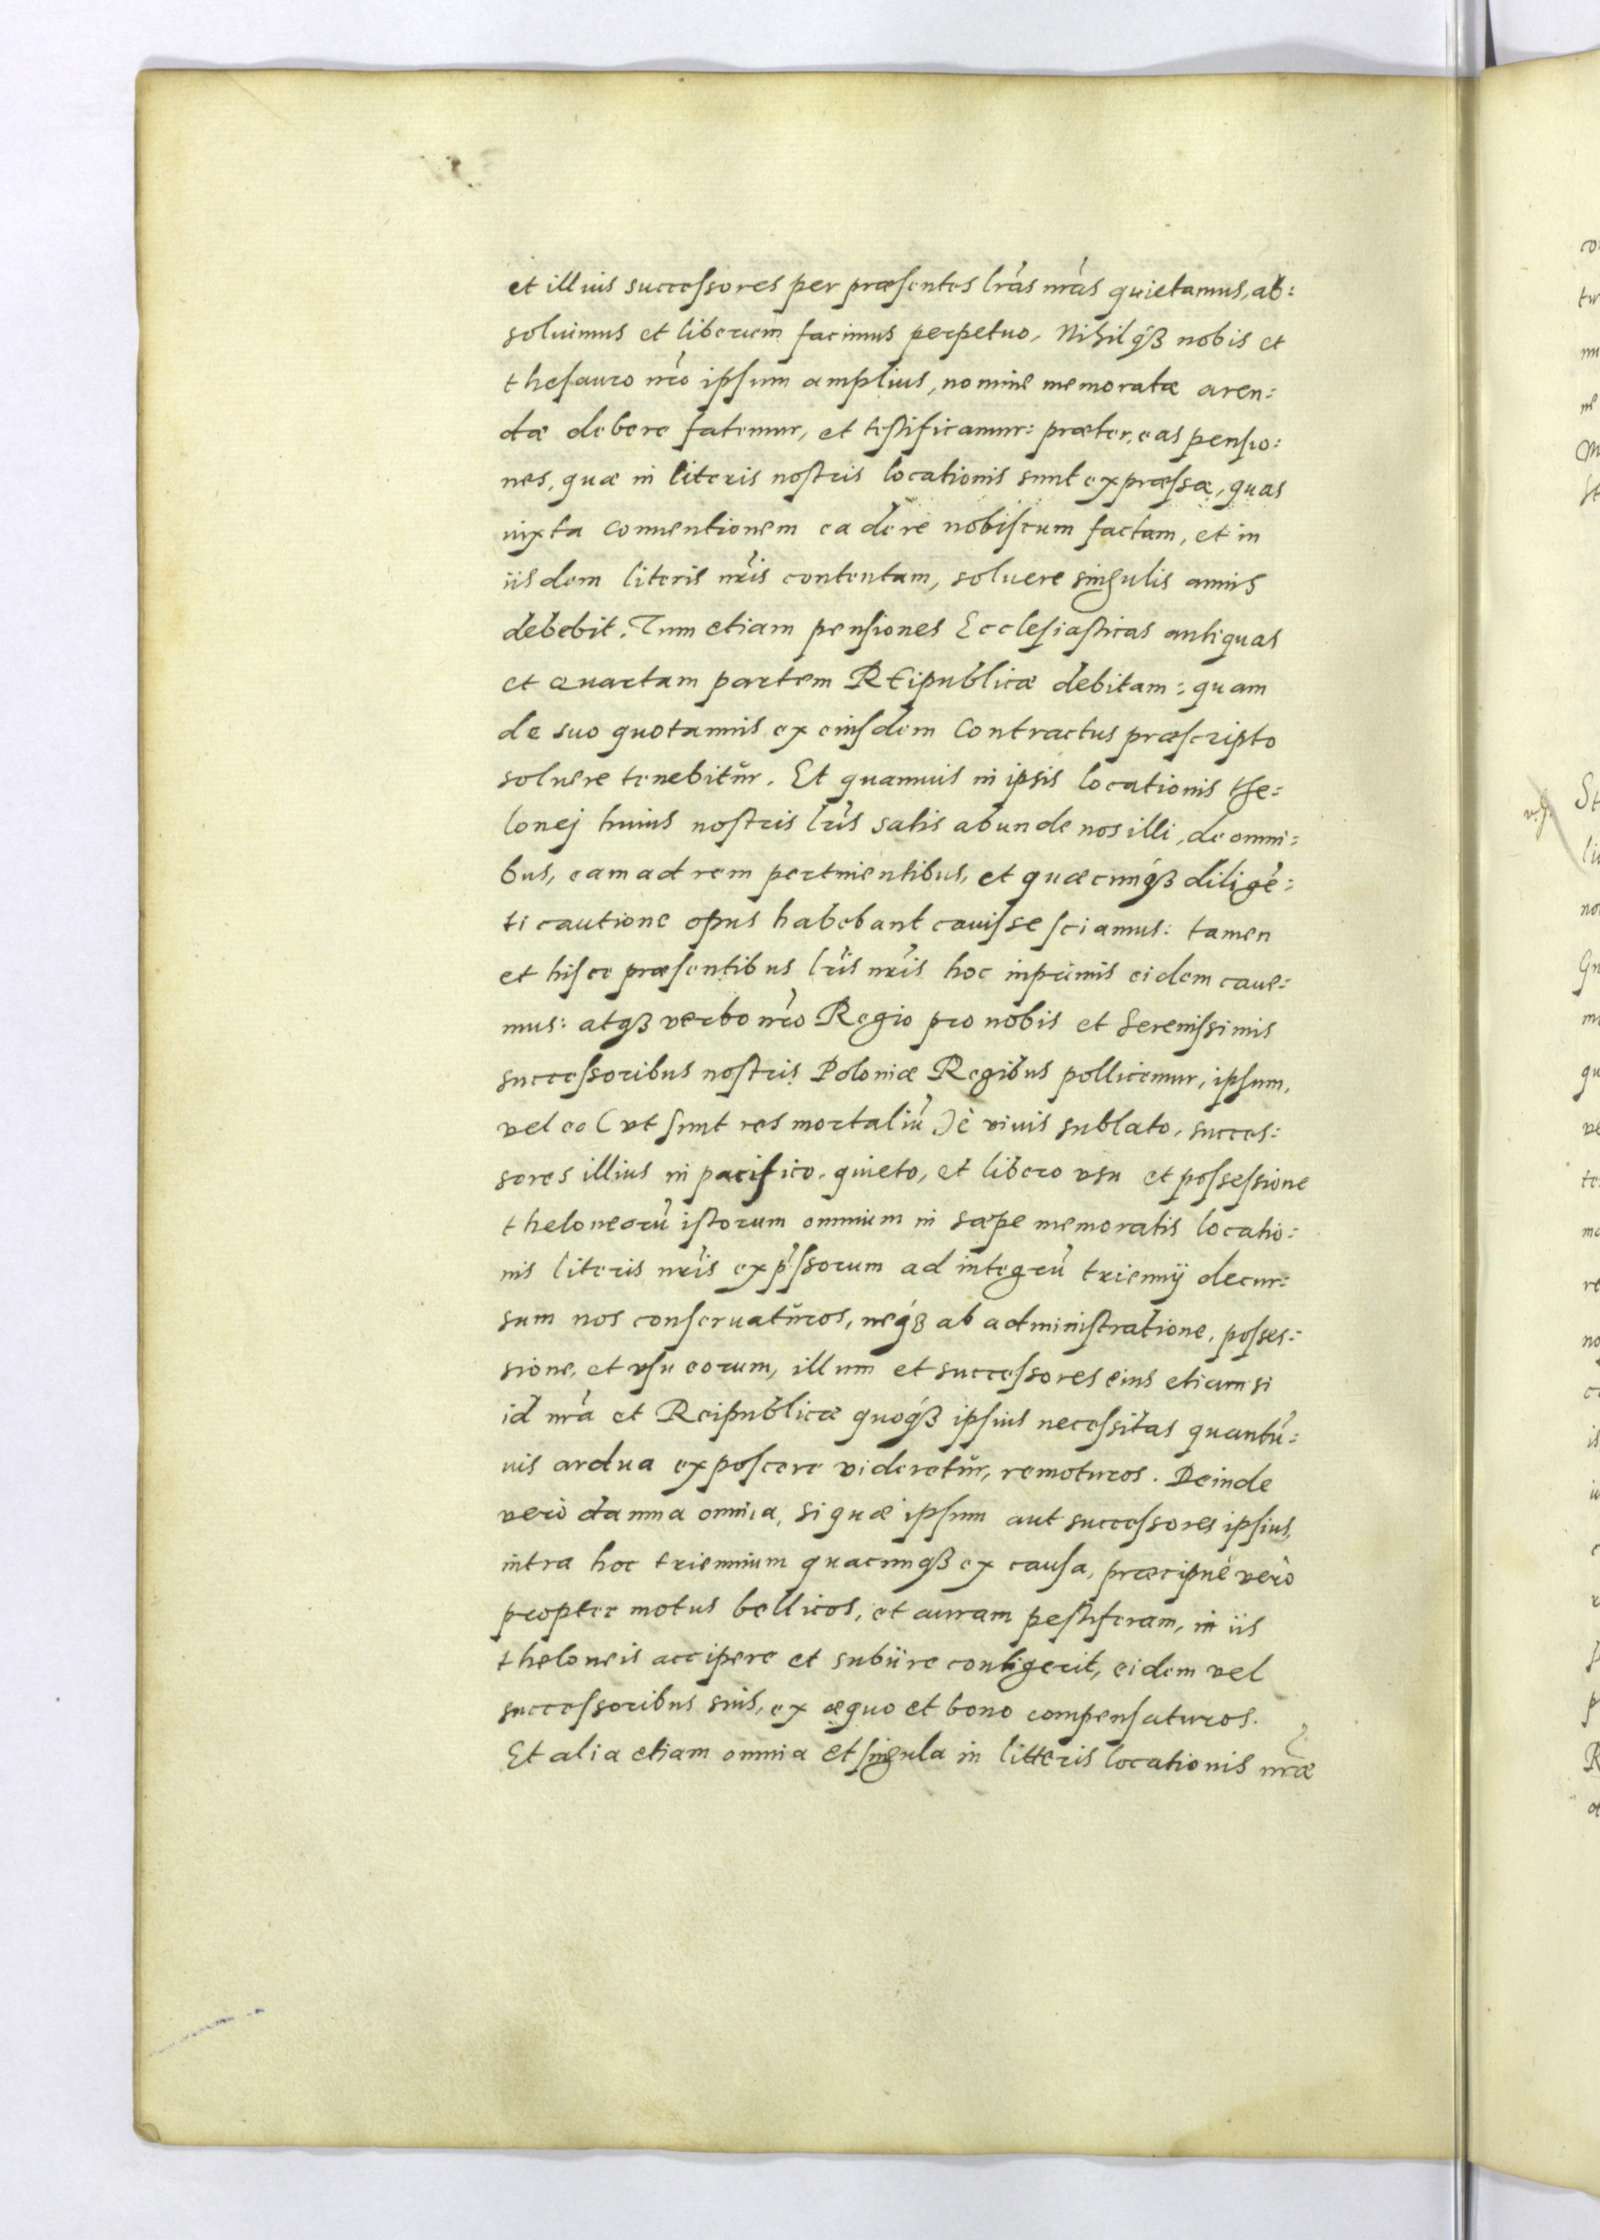 et illius successores per præsentes lrãs nrãs quietamus, ab:
soluimus et liberum facimus perpetuo, Nihilq́ȝ nobis et
thesauro nrõ ipsum amplius, nomine memoratæ aren:
dæ debere fatemur, et testificamur: præter, eas pensio:
nes, quæ in literis nostris locationis sunt expræssæ, quas
iuxta Conuentionem ea de re nobiscum factam, et in
iisdem literis nrĩs contentam, soluere singulis annis
debebit. Tum etiam pensiones Ecclesiasticas antiquas
et quartam partem REipublicæ debitam: quam
de suo quotannis ex eiusdem Contractus præscripto
soluere tenebitŭr. Et quamuis in ipsis locationis the:
lonej huius nostris lrĩs satis abunde nos illi, de omni:
bus, eam ad rem pertinentibus, et quæcunq́ȝ diligẽ:
ti cautione opus habebant cauisse sciamus: tamen
et hisce præsentibus lrĩs nrĩs hoc inprimis eidem caue:
mus: atqȝ verbo nrõ Regio pro nobis et Serenissimis
successoribus nostris Poloniæ Regibus pollicemur, ipsum,
vel eo (vt sunt res mortaliũ) è viuis sublato, succes:
sores illius in pacifico, quieto, et libero vsu et possessione
theloneorũ istorum omnium in sæpe memoratis locatio:
nis literis nrĩs exp̃ssorum ad integrũ triennij decur:
sum nos conseruatŭros, neq́ȝ ab administratione, posses:
sione, et vsu eorum, illum et successores eius etiam si
id nrã et Reipublicæ quoq́ȝ ipsius necessitas quantũ:
uis ardua exposcere videretŭr, remoturos. Deinde
verò damna omnia, si quæ ipsum aut successores ipsius,
intra hoc triennium quacunqȝ ex causa, præcipuè verò
propter motus bellicos, et auram pestiferam, in iis
theloneis accipere et subiire contigerit, eidem vel
successoribus suis, ex æquo et bono compensaturos.
Et alia etiam omnia et singula in litteris locationis nrãe